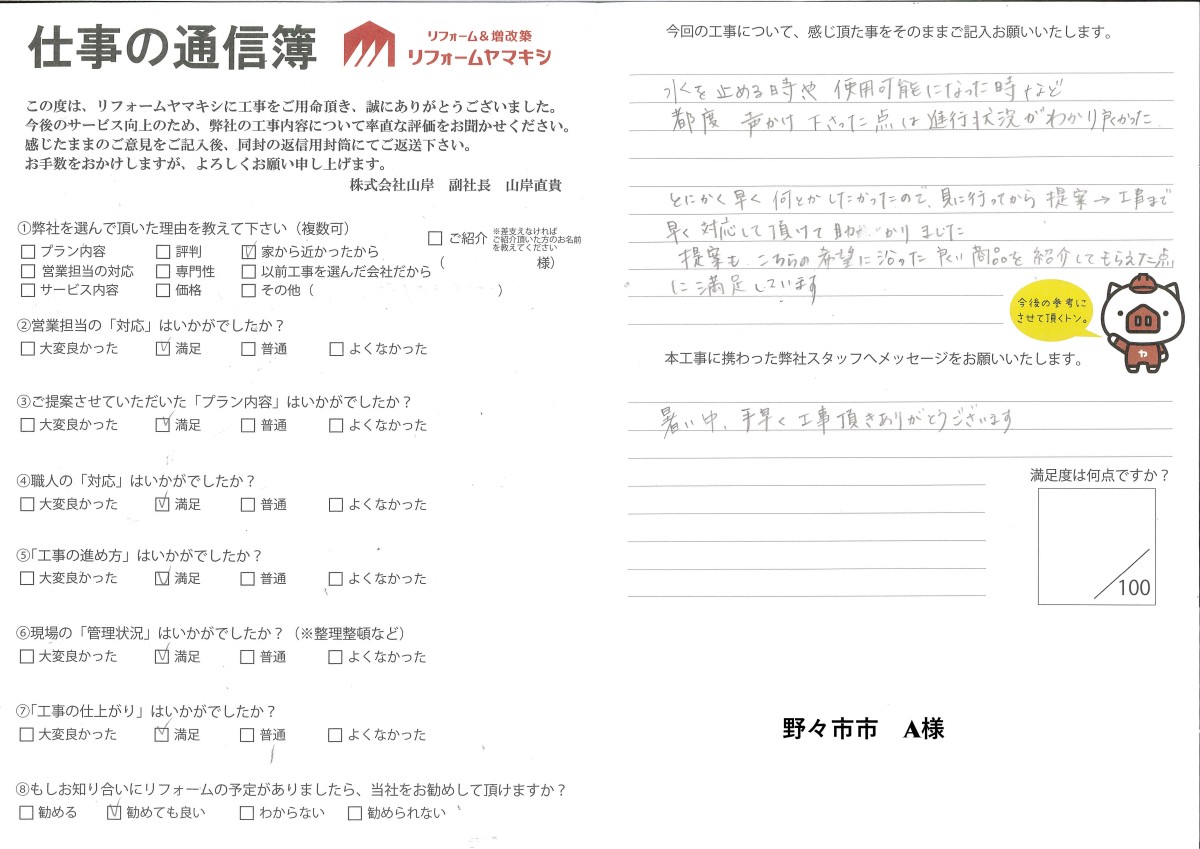 仕事の通信簿
リフォーム&増改築
リフォームヤマキシ
この度は、リフォームヤマキシに工事をご用命頂き、誠にありがとうございました。
今後のサービス向上のため、弊社の工事内容について率直な評価をお聞かせください。
感じたままのご意見をご記入後、同封の返信用封筒にてご返送下さい。
お手数をおかけしますが、よろしくお願い申し上げます。
株式会社山岸 副社長 山岸直貴
①弊社を選んで頂いた理由を教えて下さい(複数可)
□プラン内容 □評判 ☑家から近かったから
□営業担当の対応 □専門性 □以前工事を選んだ会社だから
□サービス内容 □価格 □その他( )
□ご紹介 ※差支えなければ
ご紹介頂いた方のお名前
を教えてください
( 様)
②営業担当の「対応」はいかがでしたか?
□大変良かった ☑満足 □普通 □よくなかった
③ご提案させていただいた「プラン内容」はいかがでしたか?
□大変良かった ☑満足 □普通 □よくなかった
④職人の「対応」はいかがでしたか?
□大変良かった ☑満足 □普通 □よくなかった
⑤「工事の進め方」はいかがでしたか?
□大変良かった ☑満足 □普通 □よくなかった
⑥現場の「管理状況」はいかがでしたか?(※整理整頓など)
□大変良かった ☑満足 □普通 □よくなかった
⑦「工事の仕上がり」はいかがでしたか?
□大変良かった ☑満足 □普通 □よくなかった
⑧もしお知り合いにリフォームの予定がありましたら、当社をお勧めして頂けますか?
□勧める ☑勧めても良い □わからない □勧められない
今回の工事について、感じ頂た事をそのままご記入お願いいたします。
水を止める時や 使用可能になった時など
都度 声かけ下さった点は進行状況がわかり良かった
とにかく早く何とかしたかったので、見に行ってから提案→工事まで
早く対応して頂けて助かりました
提案も、こちらの希望に沿った良い商品を紹介してもらえた点
に満足しています
今後の参考に
させて頂くトン。
ヤ
本工事に携わった弊社スタッフへメッセージをお願いいたします。
暑い中、手早く工事頂きありがとうございます
満足度は何点ですか?
/100
野々市市 A様